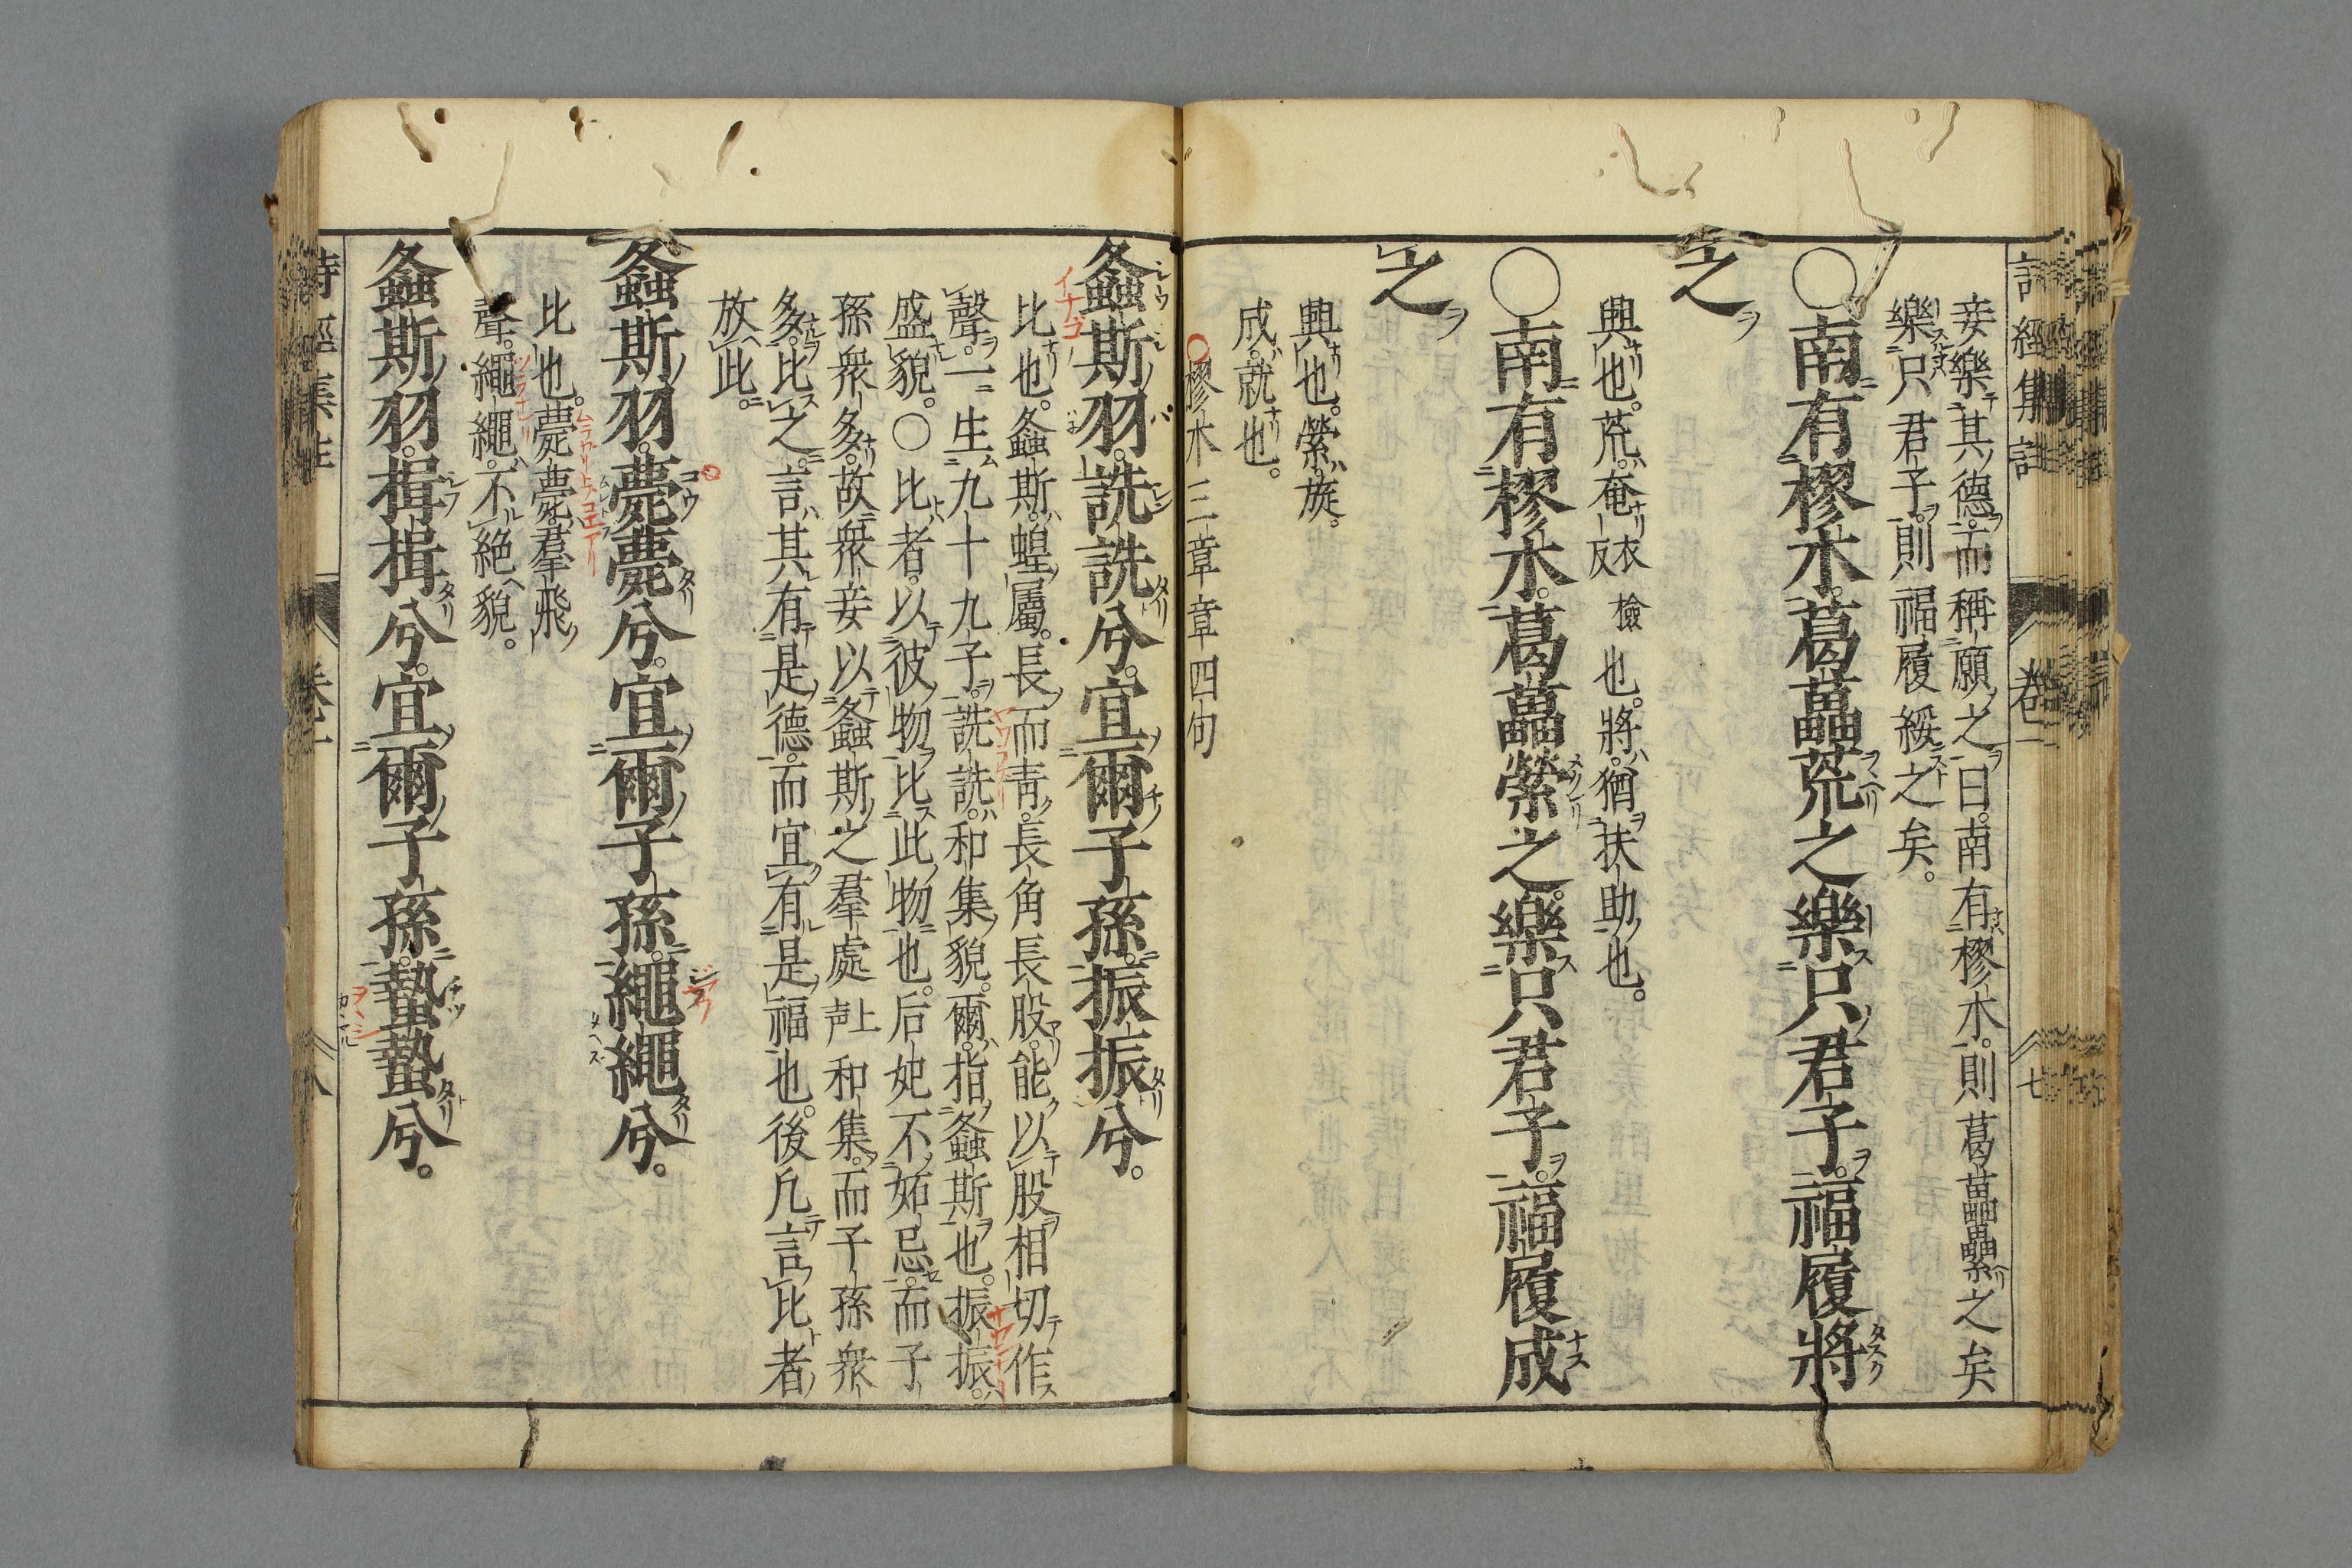 妾樂其德。而稱願之曰。南有樛木。則葛藟纍之矣
樂只君子。則福履綏之矣。
○南有樛木。葛藟荒之樂只君子。福履將
之
興也。荒。奄也。將。猶扶助也。
衣檢
反
○南有樛木。葛藟縈之。樂只君子。福履成
之
興也。縈。旋。
成。就也。
樛木三章章四句
螽斯羽。詵詵兮。宜爾子孫。振振兮。
比也。螽斯。蝗屬。長而靑。長角長股。能以股相切作
聲。一生九十九子。詵詵。和集貌。爾。指螽斯也。振振。
盛貌。○比者。以彼物比此物也。后妃不妬忌。而子
孫衆多。故衆妾以螽斯之羣處上声和集。而子孫衆
多。比之。言其有是德。而宜有是福也。後凡言比者
放此。
螽斯羽。薨薨兮。宜爾子孫。繩繩兮。
比也。薨薨。羣飛
聲。繩繩。不絶貌。
螽斯羽。揖揖兮。宜爾子孫。蟄蟄兮。